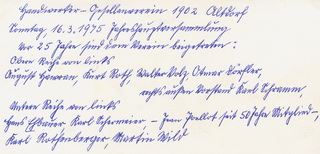 Handwerker-Gesellenverein 1902 Altdorf
Sonntag, 16.3.1975 Jahreshauptversammlung
Vor 25 Jahren sind dem Verein beigetreten:
Obere Reihe von links
August Kurt Roth, Walter Volz, Otmar Dörfler,
rechts außen Vorstand Karl Schramm,
Untere Reihe von links
Hans Karl - Jean seit 50 Jahre Mitglied -,
Karl Rothenberger, Martin Wild